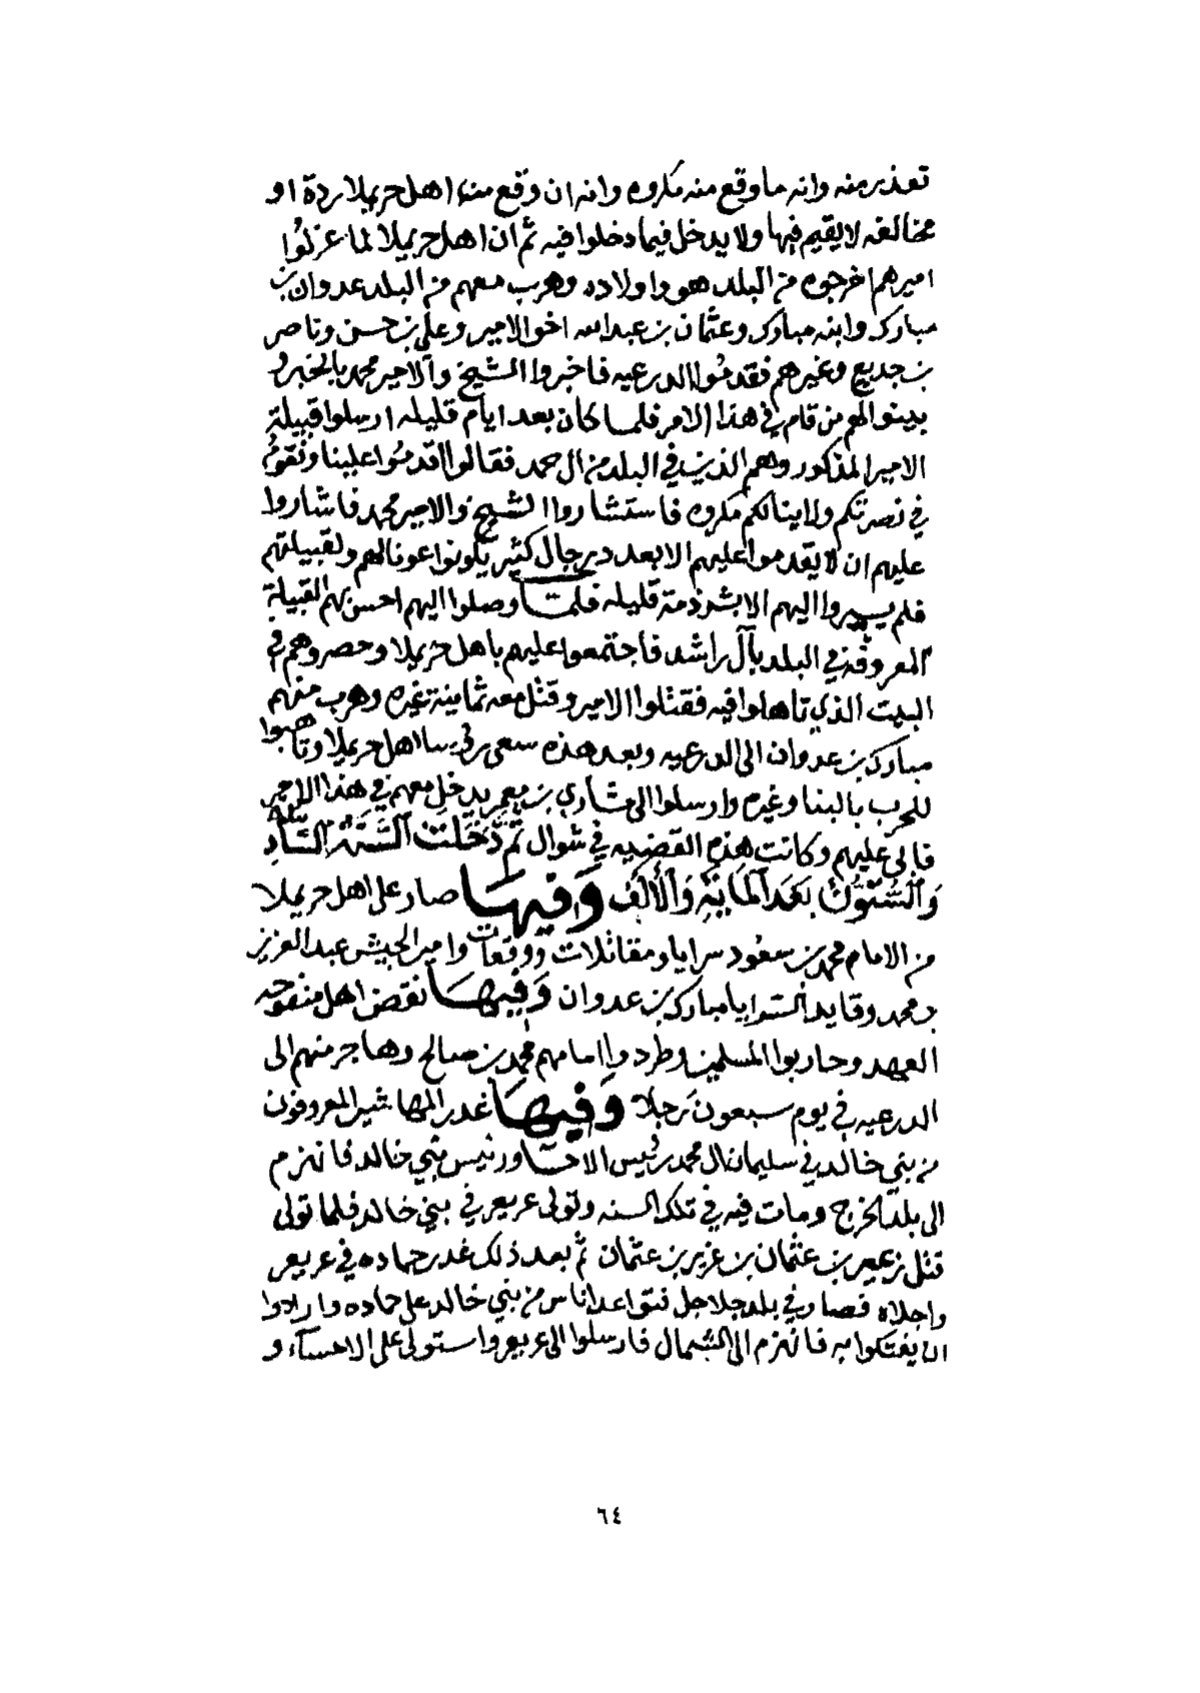 تعذير منه وانه ما وقع منه مكروه وانه ان وقع من اهل حريملا ردة او
مخالفه لا يقيم فيها ولا يدخل فيما دخلوا فيه ثم ان اهل حريملا لما عزلوا
اميرهم اخرجوه من البلد هو واولاده وهرب معهم من البلد عدوان بن
مبارك وابنه مبارك وعثمان بن عبدالله اخو الامير وعلي بن حسن وناصر
بن جديع وغيرهم فقدموا الدرعيه فاخبروا الشيخ والامير محمد بالخبر و
بينوا لهم من قام في هذا الامر فلما كان بعد ايام قليله ارسلوا قبيلة
الامير المذكور وهم الذين في البلد من ال حمد فقالوا اقدموا علينا ونقوم
في نصرتكم ولا ينالكم مكروه فاستشاروا الشيخ والامير محمد فاشاروا
عليهم ان لا يقدموا عليهم الا بعد رجال كثير يكونوا عونا لهم ولقبيلتهم
فلم يسيروا اليهم الا بشرذمة قليله فلما وصلوا اليهم احسن بهم القبيلة
المعروفة في البلد بآل راشد فاجتمعوا عليهم باهل حريملا وحصروهم في
البيت الذي تاهلوا فيه فقتلوا الامير وقتل معه ثمانية غيره وهرب منهم
مبارك بن عدوان الى الدرعيه وبعد هذه سعى روسا اهل حريملا وتاهبوا
للحرب بالبنا وغيره وارسلوا الى مشاري بن معمر يدخل معهم في هذا الامر
فابى عليهم وكانت هذه القضيه في شوال ثم دَخَلَت السَّنَةُ الثَّامِنَة
وَالسِّتُّونَ بَعْدَ المَايَةِ وَالأَلفِ وَفِيهَا صار على اهل حريملا
من الامام محمد بن سعود سرايا ومقاتلات ووقعات وامير الجيش عبد العزيز
بن محمد وقايد السرايا مبارك بن عدوان وَفِيهَا نقض اهل منفوحه
العهد وحاربوا المسلمين وطردوا امامهم محمد بن صالح وهاجر منهم الى
الدرعيه في يوم سبعون رجلا وَفِيهَا غدر المهاشير المعروفون
من بني خالد في سليمان ال محمد رئيس الاحسا ورئيس بني خالد فانهزم
الى بلد الخرج ومات فيه في تلك السنه وتولى عريعر في بني خالد فلما تولى
قتل زعير بن عثمان بن غرير بن عثمان ثم بعد ذلك غدر حماده في عريعر
واجلاه فصار في بلد جلاجل فتواعد اناس من بني خالد على حماده وارادوا
ان يفتكوا به فانهزم الى الشمال فارسلوا الى عريعر واستولى على الاحسآء و
٦٤